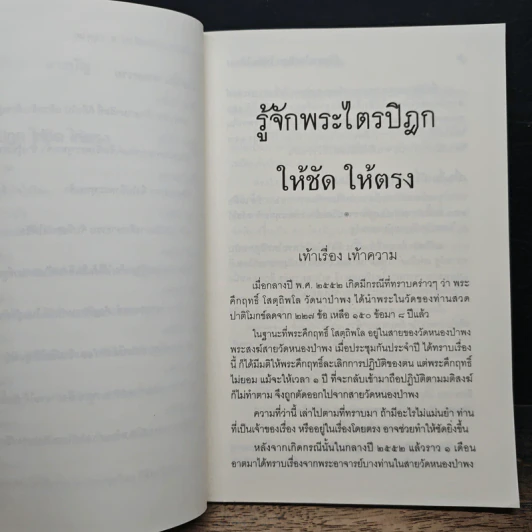 รู้จักพระไตรปิฎก
ให้ชัด ให้ตรง
เท้าเรื่อง เท้าความ
เมื่อกลางปี พ.ศ. ๒๕๕๒ เกิดมีกรณีที่ทราบคร่าวๆ ว่า พระ
คึกฤทธิ์ โสตฺถิพโล วัดนาป่าพง ได้นำพระในวัดของท่านสวด
ปาติโมกข์ลดจาก ๒๒๗ ข้อ เหลือ ๑๕๐ ข้อมา ๘ ปีแล้ว
ในฐานะที่พระคึกฤทธิ์ โสตฺถิพโล อยู่ในสายของวัดหนองป่าพง
พระสงฆ์สายวัดหนองป่าพง เมื่อประชุมกันประจำปี ได้ทราบเรื่อง
นี้ ก็ได้มีมติให้พระคึกฤทธิ์ละเลิกการปฏิบัติของตน แต่พระคึกฤทธิ์
ไม่ยอม แม้จะให้เวลา ๑ ปี ที่จะกลับเข้ามาถือปฏิบัติตามมติสงฆ์
ก็ไม่ทำตาม จึงถูกตัดออกไปจากสายวัดหนองป่าพง
ความที่ว่านี้ เล่าไปตามที่ทราบมา ถ้ามีอะไรไม่แม่นยำ ท่าน
ที่เป็นเจ้าของเรื่อง หรืออยู่ในเรื่องโดยตรง อาจช่วยทำให้ชัดยิ่งขึ้น
หลังจากเกิดกรณีนั้นในกลางปี ๒๕๕๒ แล้วราว ๑ เดือน
อาตมาได้ทราบเรื่องจากพระอาจารย์บางท่านในสายวัดหนองป่าพง